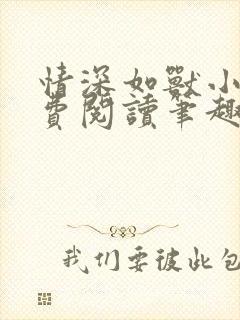 情深如獸小
費閱讀筆趣
我们要彼此包